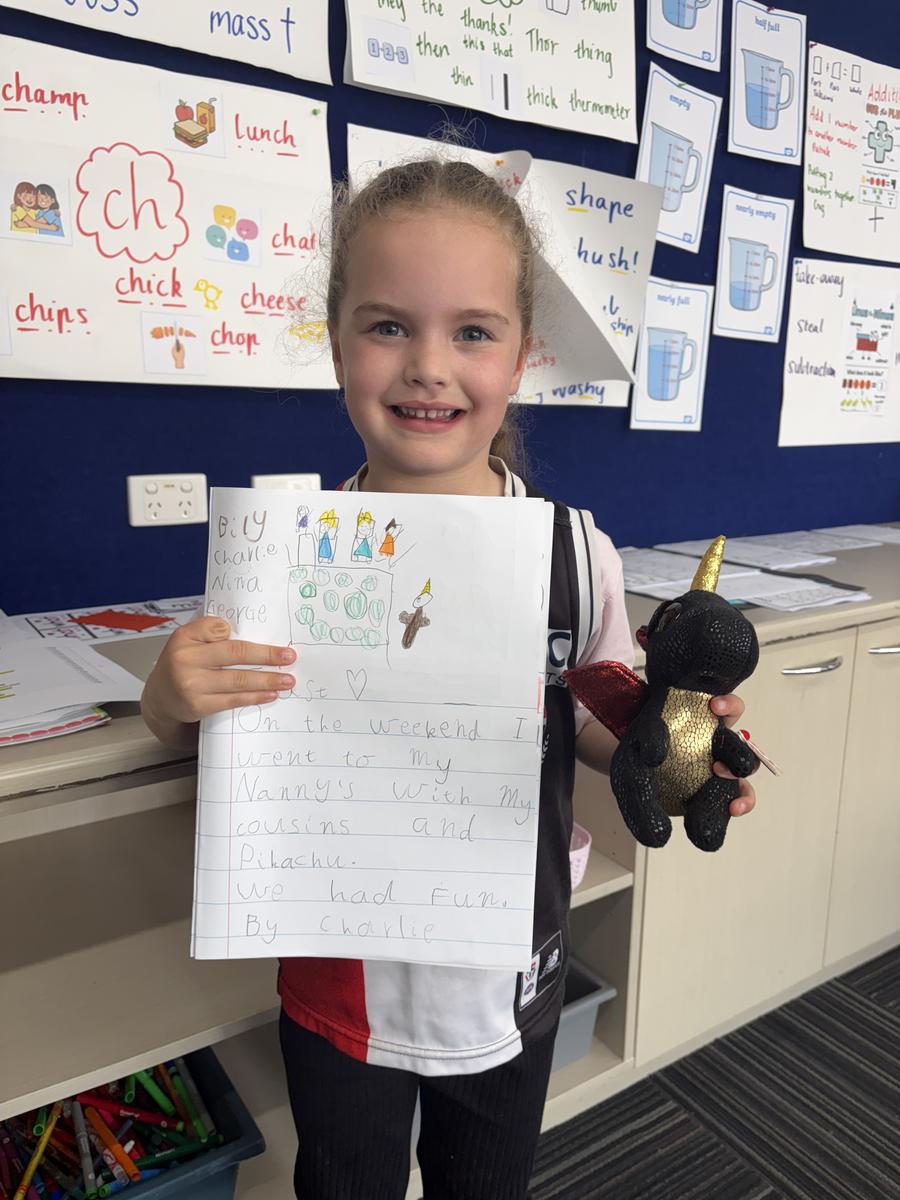 mass t
they the thanks! thumb
then this that Thor thing
thin thick thermometer
empty
half full
nearly empty
nearly full
champ
Lunch
ch
chat
chick
cheese
chips
chop
shape
hush!
ship
washy
Add 1 number
to another number
Putting 2
numbers together
take-away
steal
subtraction
Bily
Charlie
Nina
George
On the weekend I
went to My
Nanny's with My
cousins and
Pikachu.
We had Fun.
By Charlie